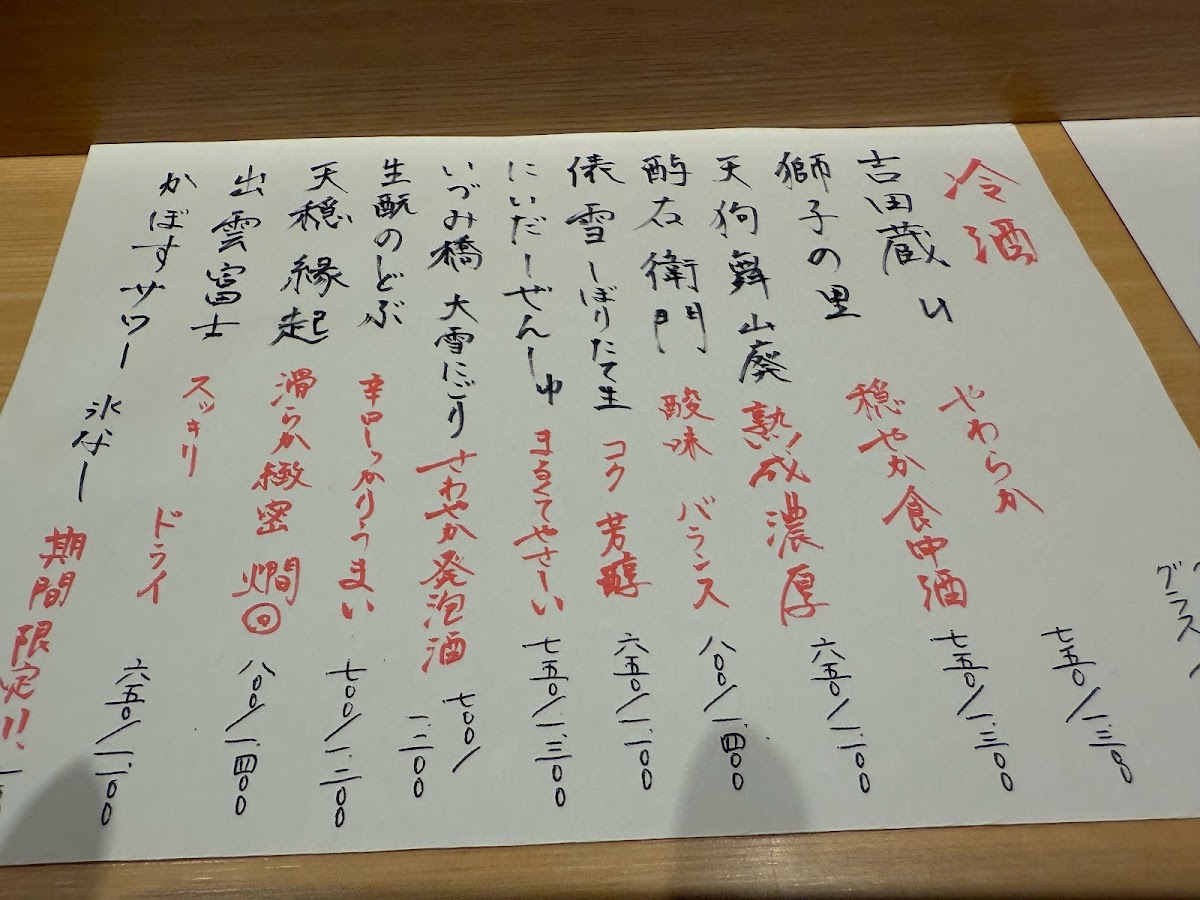 グラス/
冷酒
吉田蔵 u やわらか 七五〇/一.三〇〇
獅子の里 穏やか 食中酒 七五〇/一.三〇〇
天狗舞 山廃 熟成 濃厚 六五〇/一.一〇〇
酔右衛門 酸味 バランス 八〇〇/一.四〇〇
俵雪 しぼりたて生 コク 芳醇 六五〇/一.一〇〇
にいだしぜんしゅ まるくてやさしい 七五〇/一.三〇〇
いづみ橋 大雪にごり さわやか発泡酒 七〇〇/一.二〇〇
生酛のどぶ 辛口しっかりうまい 七〇〇/一.二〇〇
天穏 縁起 滑らか緻密 燗◎ 八〇〇/一.四〇〇
出雲富士 スッキリ ドライ 六五〇/一.一〇〇
かぼすサワー 氷なし 期間限定!!